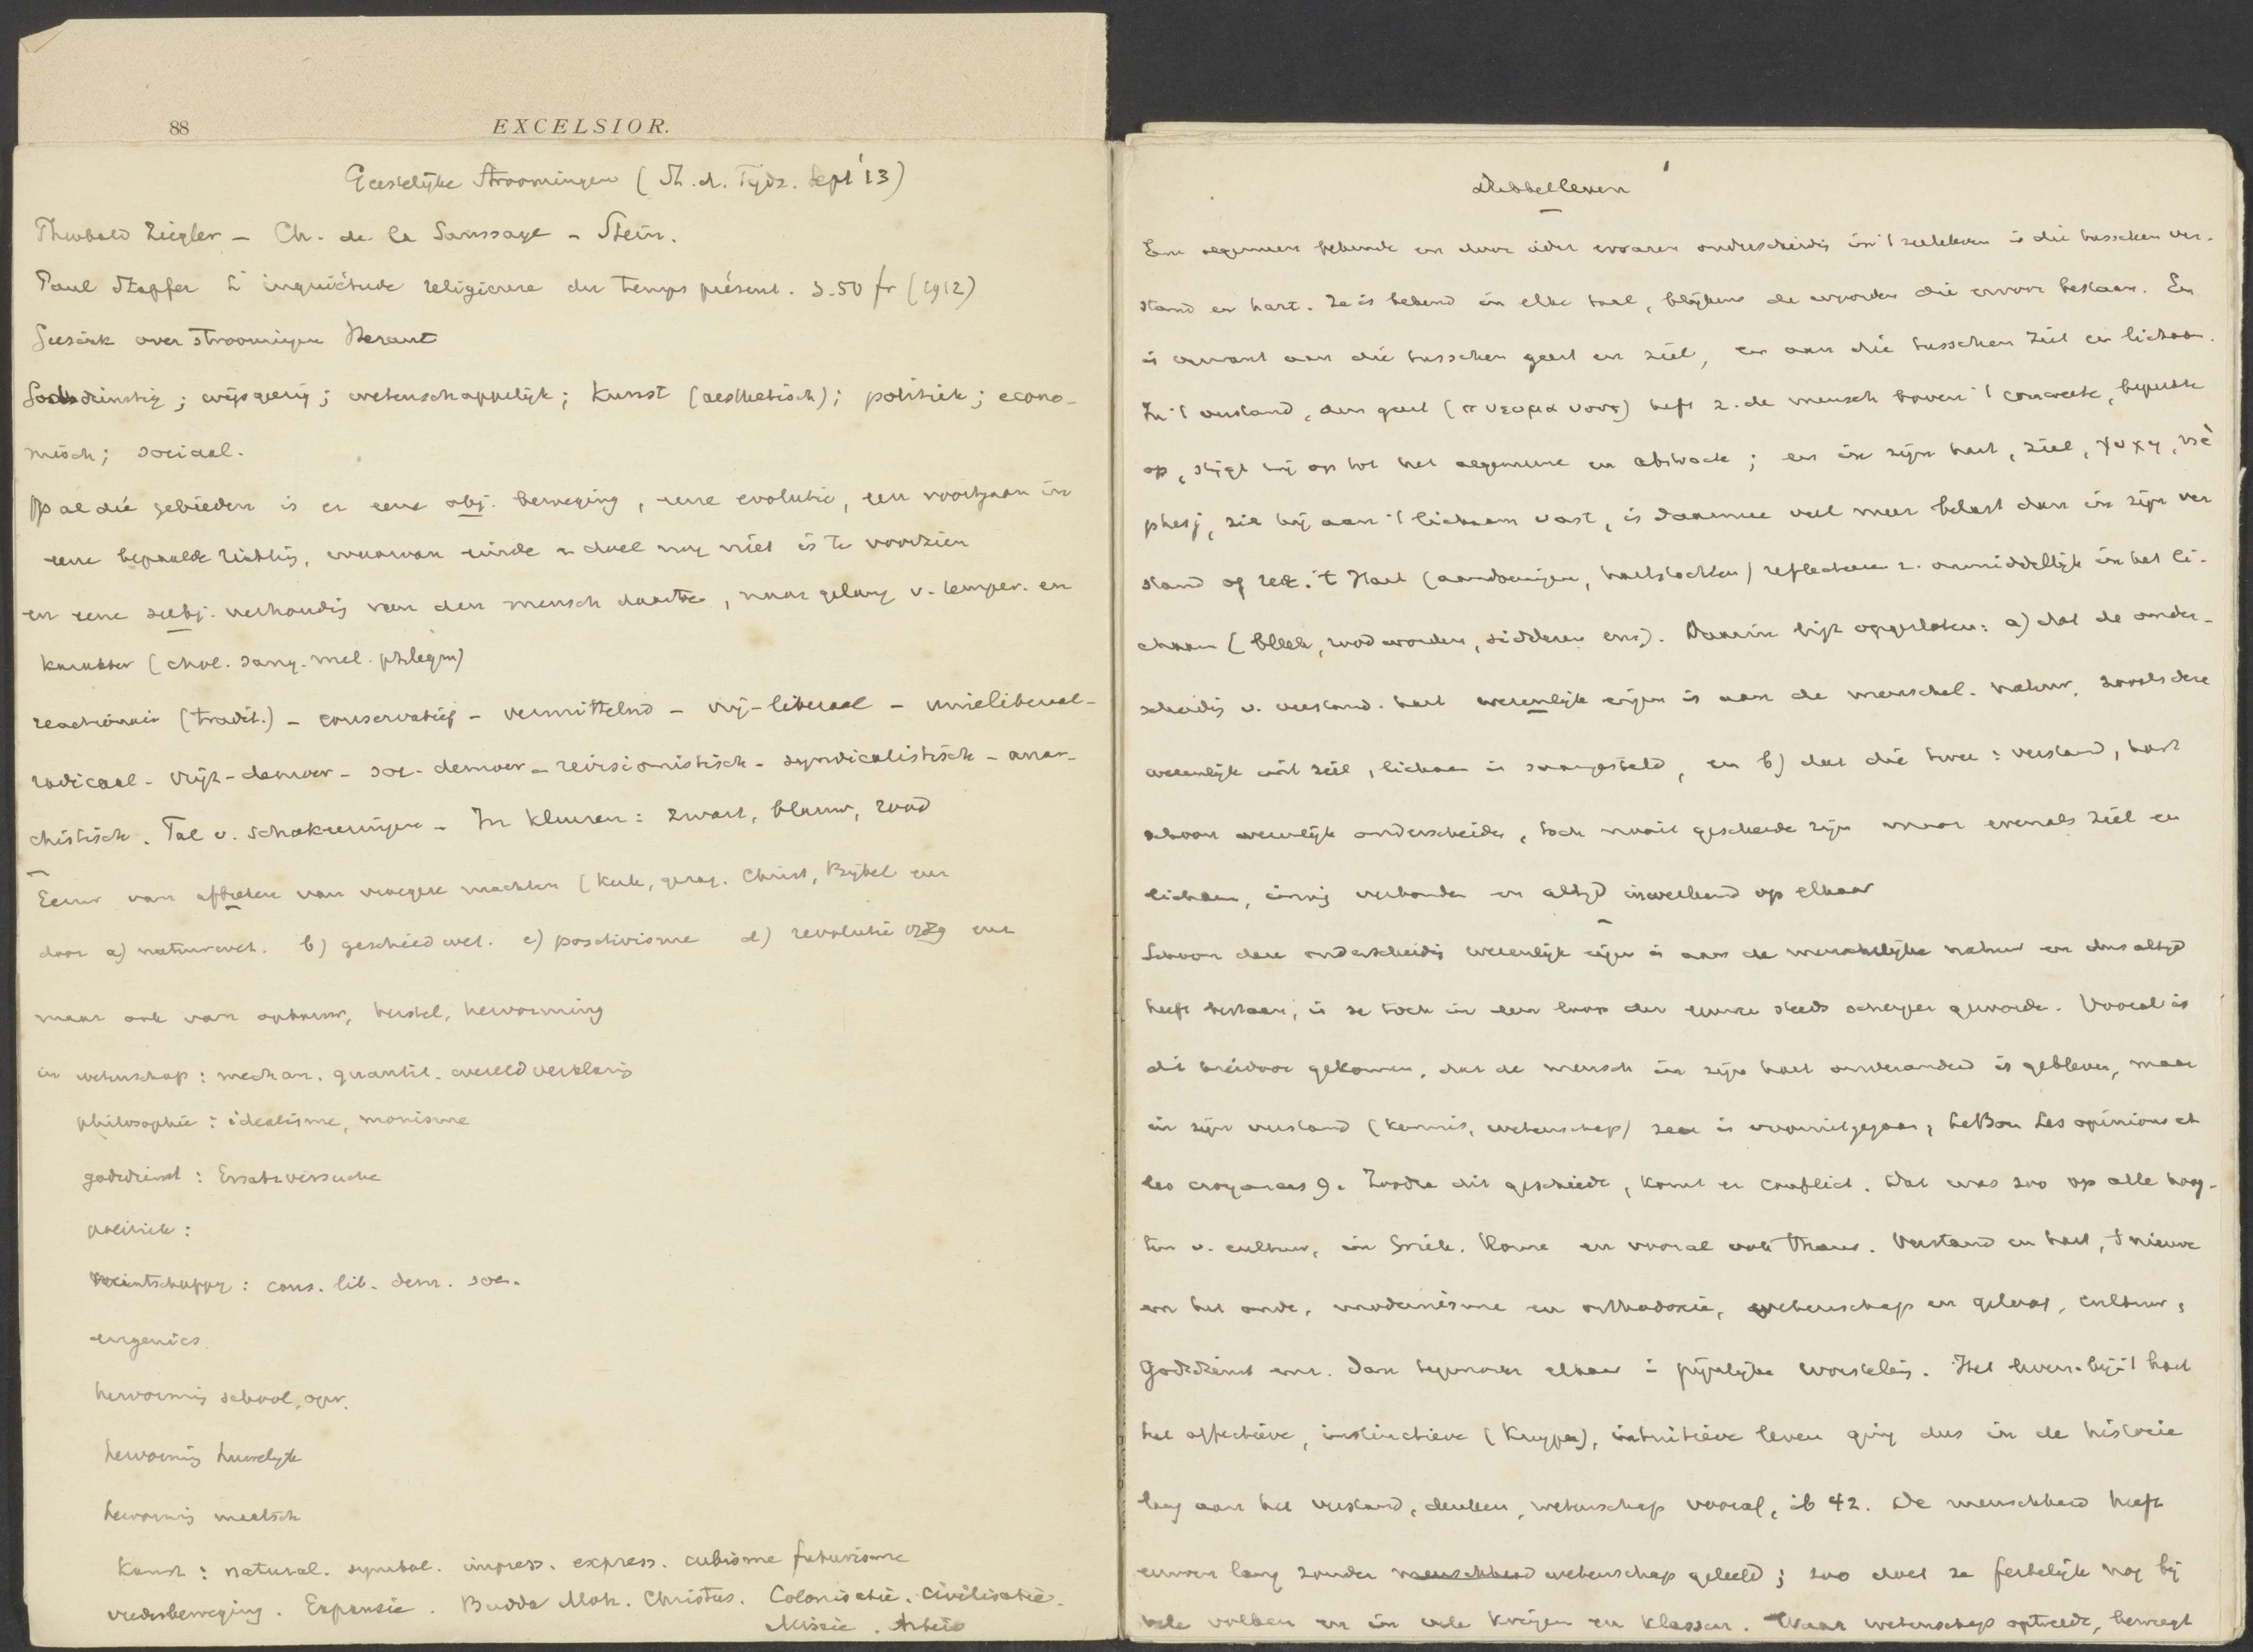 88 EXCELSIOR.
Geestelijke Stroomingen (St. d. Tijds. Sept '13)
Theobald Ziegler – Ch. de la Saussaye – Stein.
Paul Stapfer L'inquiétude religieuse du temps présent. 3.50 fr (1912)
over stroomingen Heraut
Godsdienstig; wijsgeerig; wetenschappelijk; Kunst (aesthetisch); politiek; econo-
misch; sociaal.
Op al die gebieden is er eene obj. beweging, eene evolutie, een voortgaan in
eene bepaalde richting, waarvan einde en doel nog niet is te voorzien
en eene subj. verhouding van den mensch daartoe, naar gelang v. temper. en
karakter (chol. sang. mel. phlegm)
reactionair (tradit.) – conservatief – vermittelnd – vrij-liberaal – unieliberaal –
radicaal – vrijz-democr – soc-democr – revisionistisch – syndicalistisch – anar-
chistisch. Tal v. schakeeringen – In kleuren: zwart, blauw, rood
Eeuw van aftreden van vroegere machten (Kerk, gezag. Christ, Bijbel enz
door a) natuurwet. b) geschiedwet. c) positivisme d) revolutie enz
maar ook van opbouw, herstel, hervorming
in wetenschap: mechan. quantit. wereldverklaring
philosophie: idealisme, monisme
godsdienst: Ersatzversuche
politiek:
maatschappij: cons. lib. dem. soc.
eugenics
hervorming school, opv.
hervorming huwelijk
hervorming maatsch
Kunst: natural. symbol. impress. express. cubisme futurisme
vredesbeweging. Expansie. Budda Moh. Christus. Colonisatie. Civilisatie.
Missie. Arbeid
Dubbelleven
Een algemeen bekende en door ieder ervaren onderscheidig in 't zieleleven is die tusschen ver-
stand en hart. Ze is bekend in elke taal, blijkens de woorden die ervoor bestaan. En
is verwant aan die tusschen geest en ziel, en aan die tusschen ziel en lichaam.
In 't verstand, den geest (πνευμα νους) heft z. de mensch boven 't concrete, beperkte
op, stijgt hij op tot het algemeene en abstracte; en in zijn hart, ziel, ψυχη, nè
phesj, zit hij aan 't lichaam vast, is daarmee veel meer belast dan in zijn ver
stand of rede. 't Hart (aandoeningen, hartstochten) reflecteeren z. onmiddellijk in het li-
chaam (bleek, rood worden, sidderen enz). Daarin ligt opgesloten: a) dat de onder-
scheidig v. verstand. hart wezenlijk eigen is aan de menschel. natuur, zooals deze
wezenlijk uit ziel, lichaam is saamgesteld, en b) dat die twee: verstand, hart
schoon wezenlijk onderscheiden, toch nooit gescheiden zijn maar evenals ziel en
lichaam, innig verbonden en altijd inwerkend op elkaar
Schoon deze onderscheidig wezenlijk eigen is aan de menschelijke natuur en dus altijd
heeft bestaan, is ze toch in den loop der eeuwen steeds scherper geworden. Vooral is
dit hierdoor gekomen, dat de mensch in zijn hart onveranderd is gebleven, maar
in zijn verstand (kennis, wetenschap) zeer is vooruitgegaan, LeBon Les opinions et
les croyances 9. Zoodra dit geschiedt, komt er conflict. Dat was zoo op alle hoog-
ten v. cultuur, in Griek. Rome en vooral ook thans. Verstand en hart, 't nieuwe
en het oude, modernisme en orthodoxie, wetenschap en geloof, cultuur,
Godsdienst enz. staan tegenover elkaar in pijnlijke worsteling. Het leven bij 't hart
het affectieve, instinctieve (Kuyper), intuitieve leven ging dus in de historie
lang aan het verstand, denken, wetenschap vooraf, ib 42. De menschheid heeft
eeuwen lang zonder menschheid wetenschap geleefd; zoo doet ze feitelijk nog bij
vele volken en in vele kringen en klassen. Waar wetenschap optreedt, beweegt